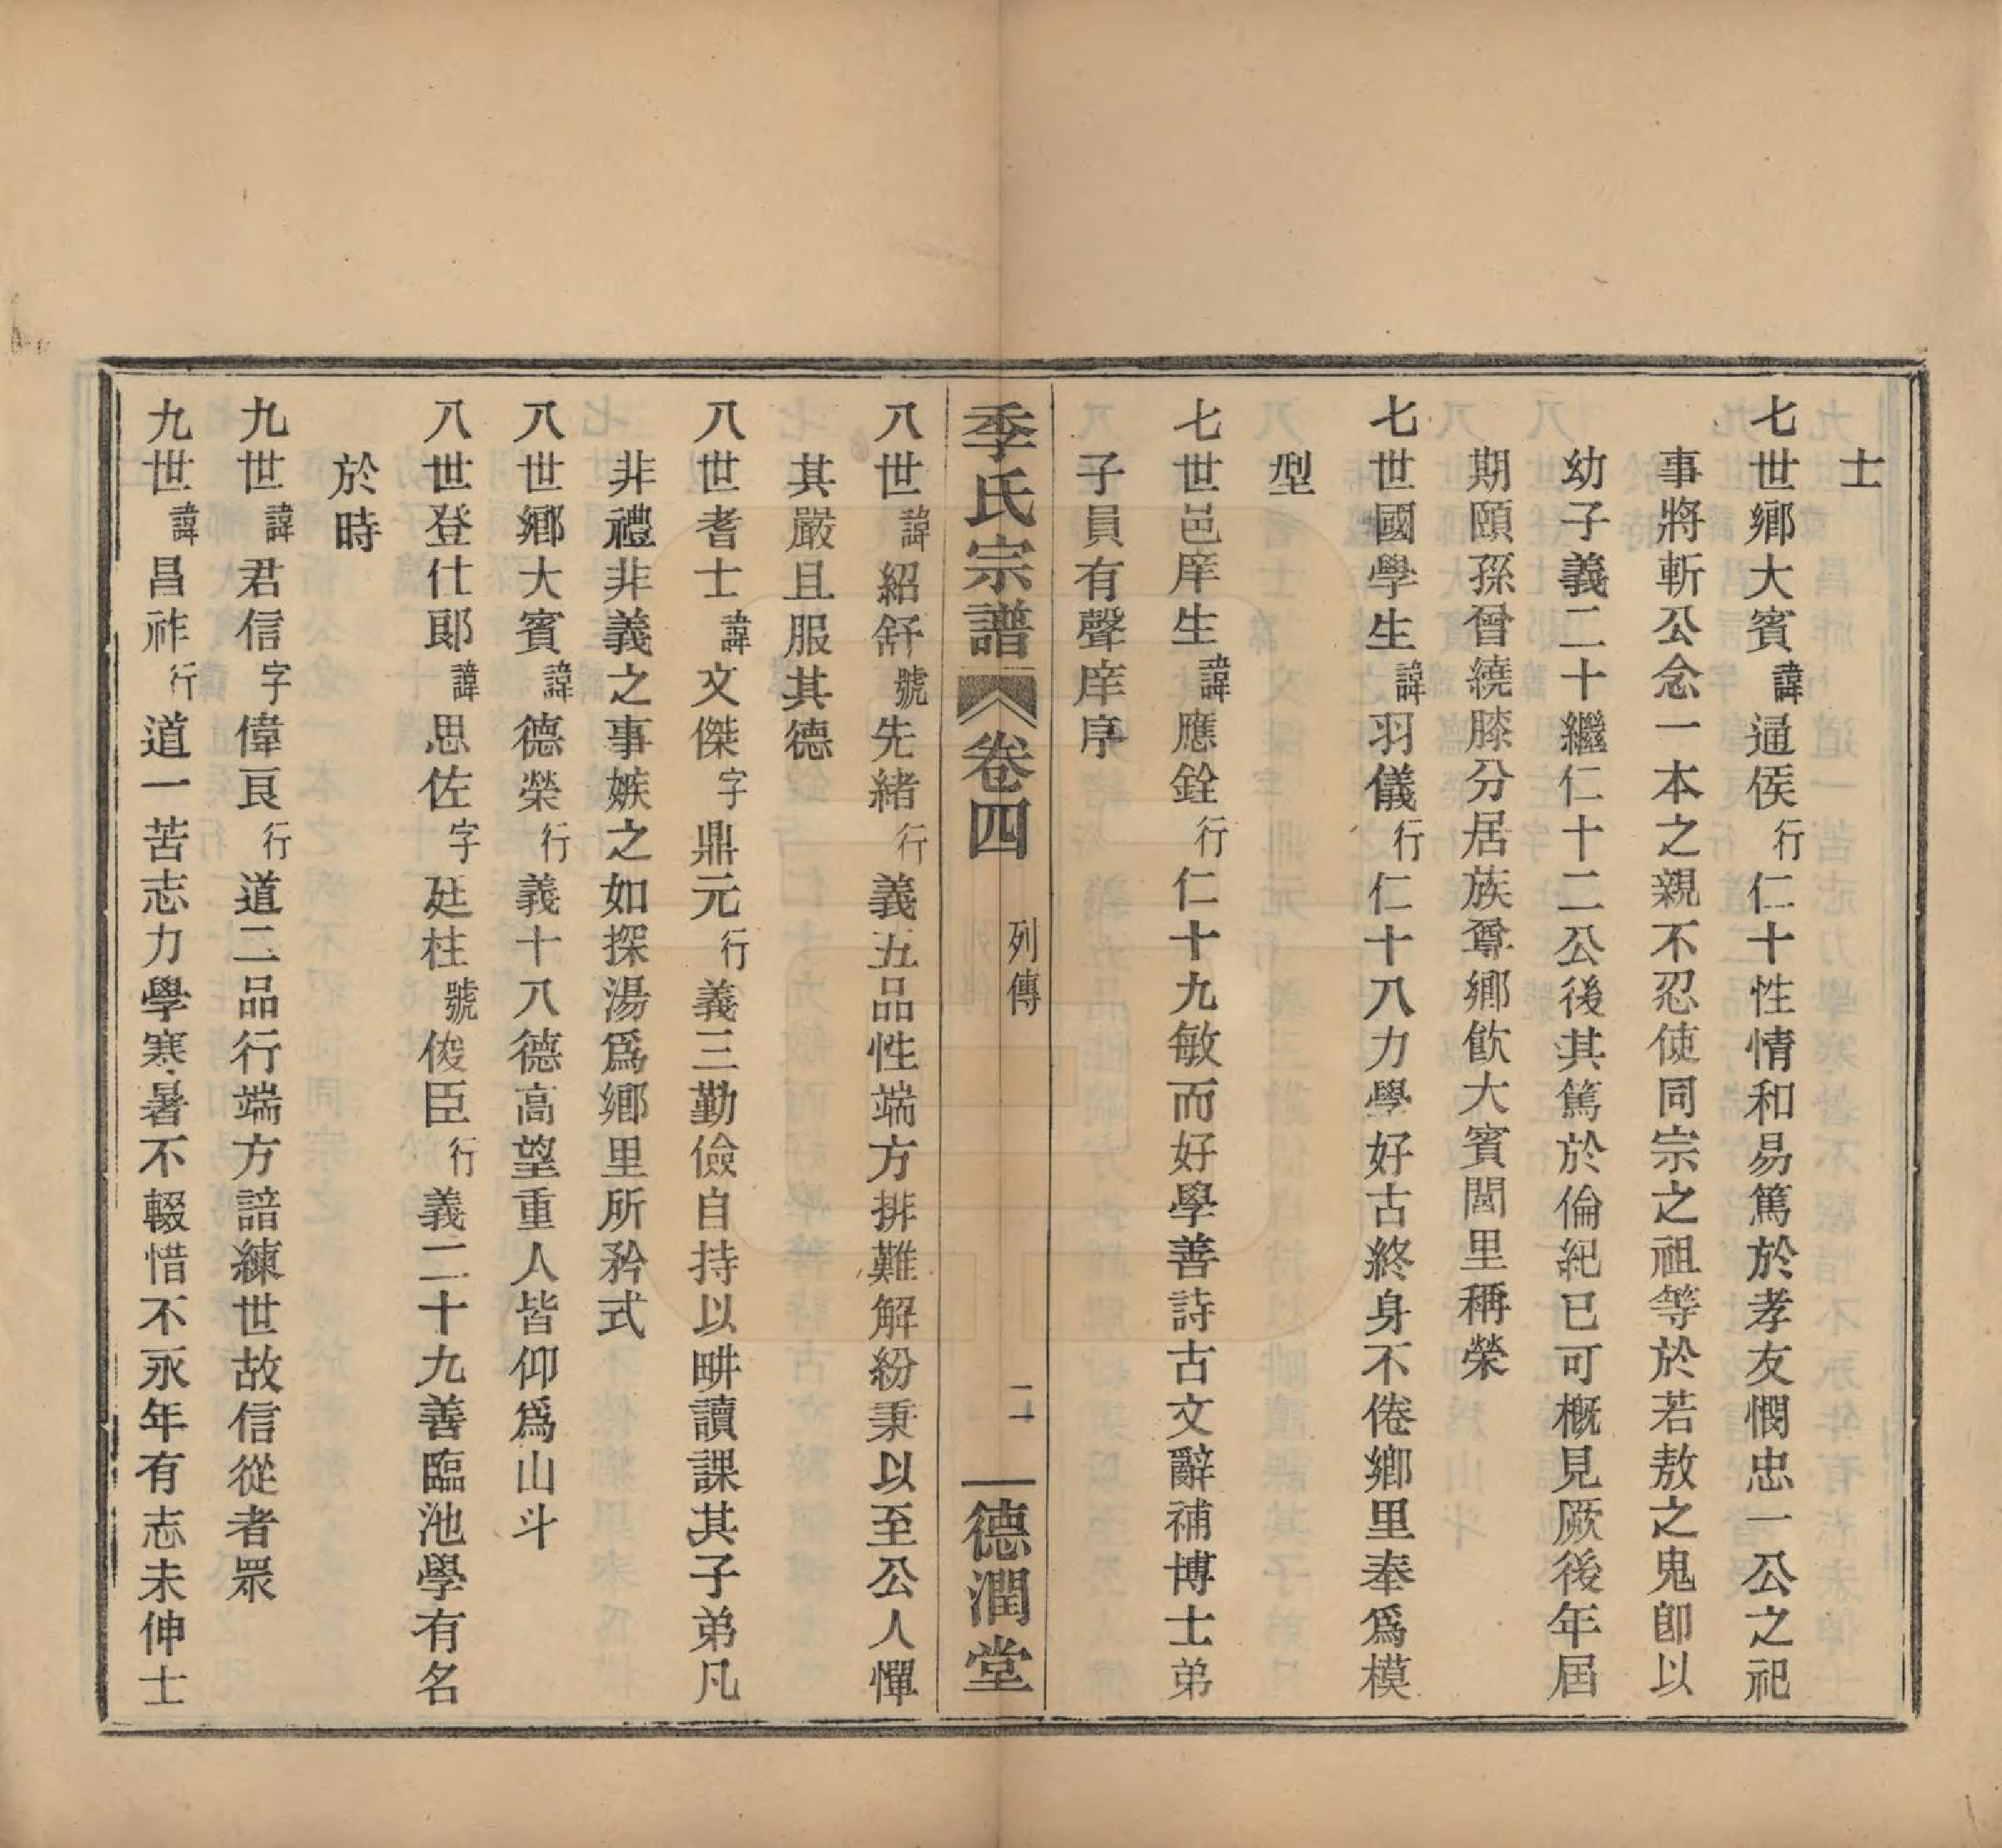 士
七世鄉大賓諱通侯行仁十性情和易篤於孝友憫忠一公之祀
事將斬公念一本之親不忍使同宗之祖等於若敖之鬼卽以
幼子義二十繼仁十二公後其篤於倫紀已可概見厥後年屆
期頤孫曾繞膝分居族尊鄉飮大賓閭里稱榮
七世國學生諱羽儀行仁十八力學好古終身不倦鄉里奉爲模
型
七世邑庠生諱應銓行仁十九敏而好學善詩古文辭補博士弟
子員有聲庠序
季氏宗譜 卷四 列傳 二 德潤堂
八世諱紹舒號先緒行義五品性端方排難解紛秉以至公人憚
其嚴且服其德
八世耆士諱文傑字鼎元行義三勤儉自持以畊讀課其子弟凡
非禮非義之事嫉之如探湯爲鄉里所矜式
八世鄉大賓諱德榮行義十八德高望重人皆仰爲山斗
八世登仕郎諱思佐字廷柱號俊臣行義二十九善臨池學有名
於時
九世諱君信字偉良行道二品行端方諳練世故信從者眾
九世諱昌祚行道一苦志力學寒暑不輟惜不永年有志未伸士